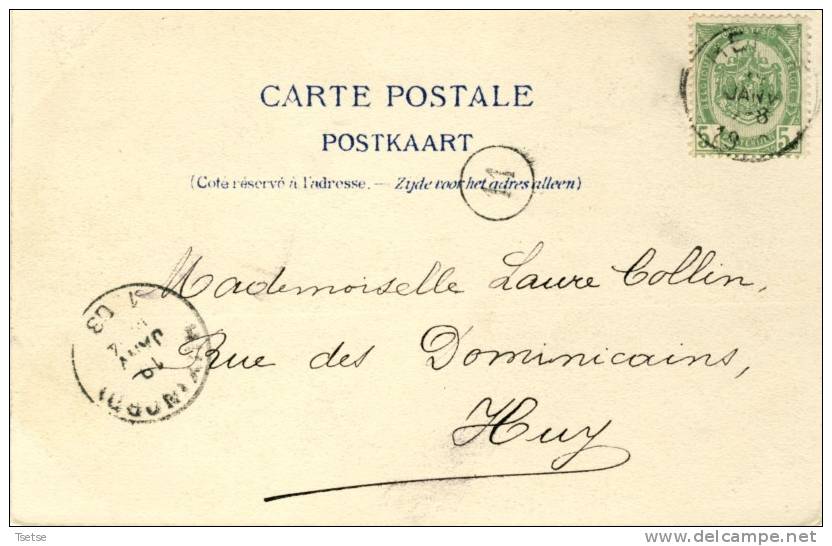 CARTE POSTALE
POSTKAART
(Coté réservé à l'adresse. — Zijde voor het adres alleen)
JANV
5 5
Mademoiselle Laure Collin,
Rue des Dominicains,
Huy
JANV
03
(NORD)
Tsetse
delcampe.net